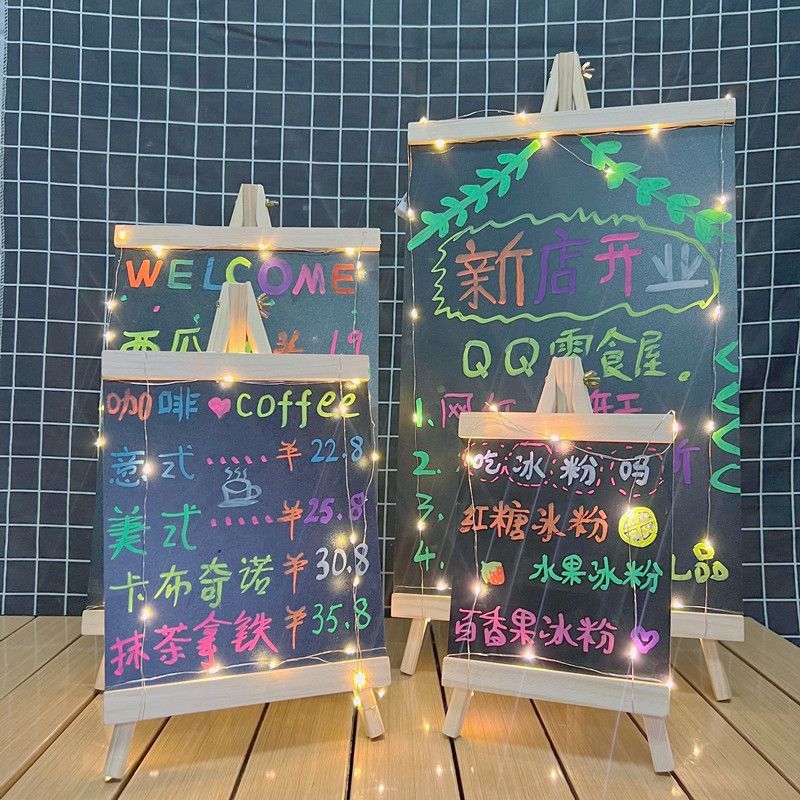 WELCOME
西瓜 19
咖啡 coffee
意式 ······ ￥22.8
美式 ······ ￥25.8
卡布奇诺 ￥30.8
抹茶拿铁 ￥35.8
新店开业
QQ零食屋
1. 网红
2.
3.
4.
吃冰粉吗
红糖冰粉
水果冰粉
百香果冰粉